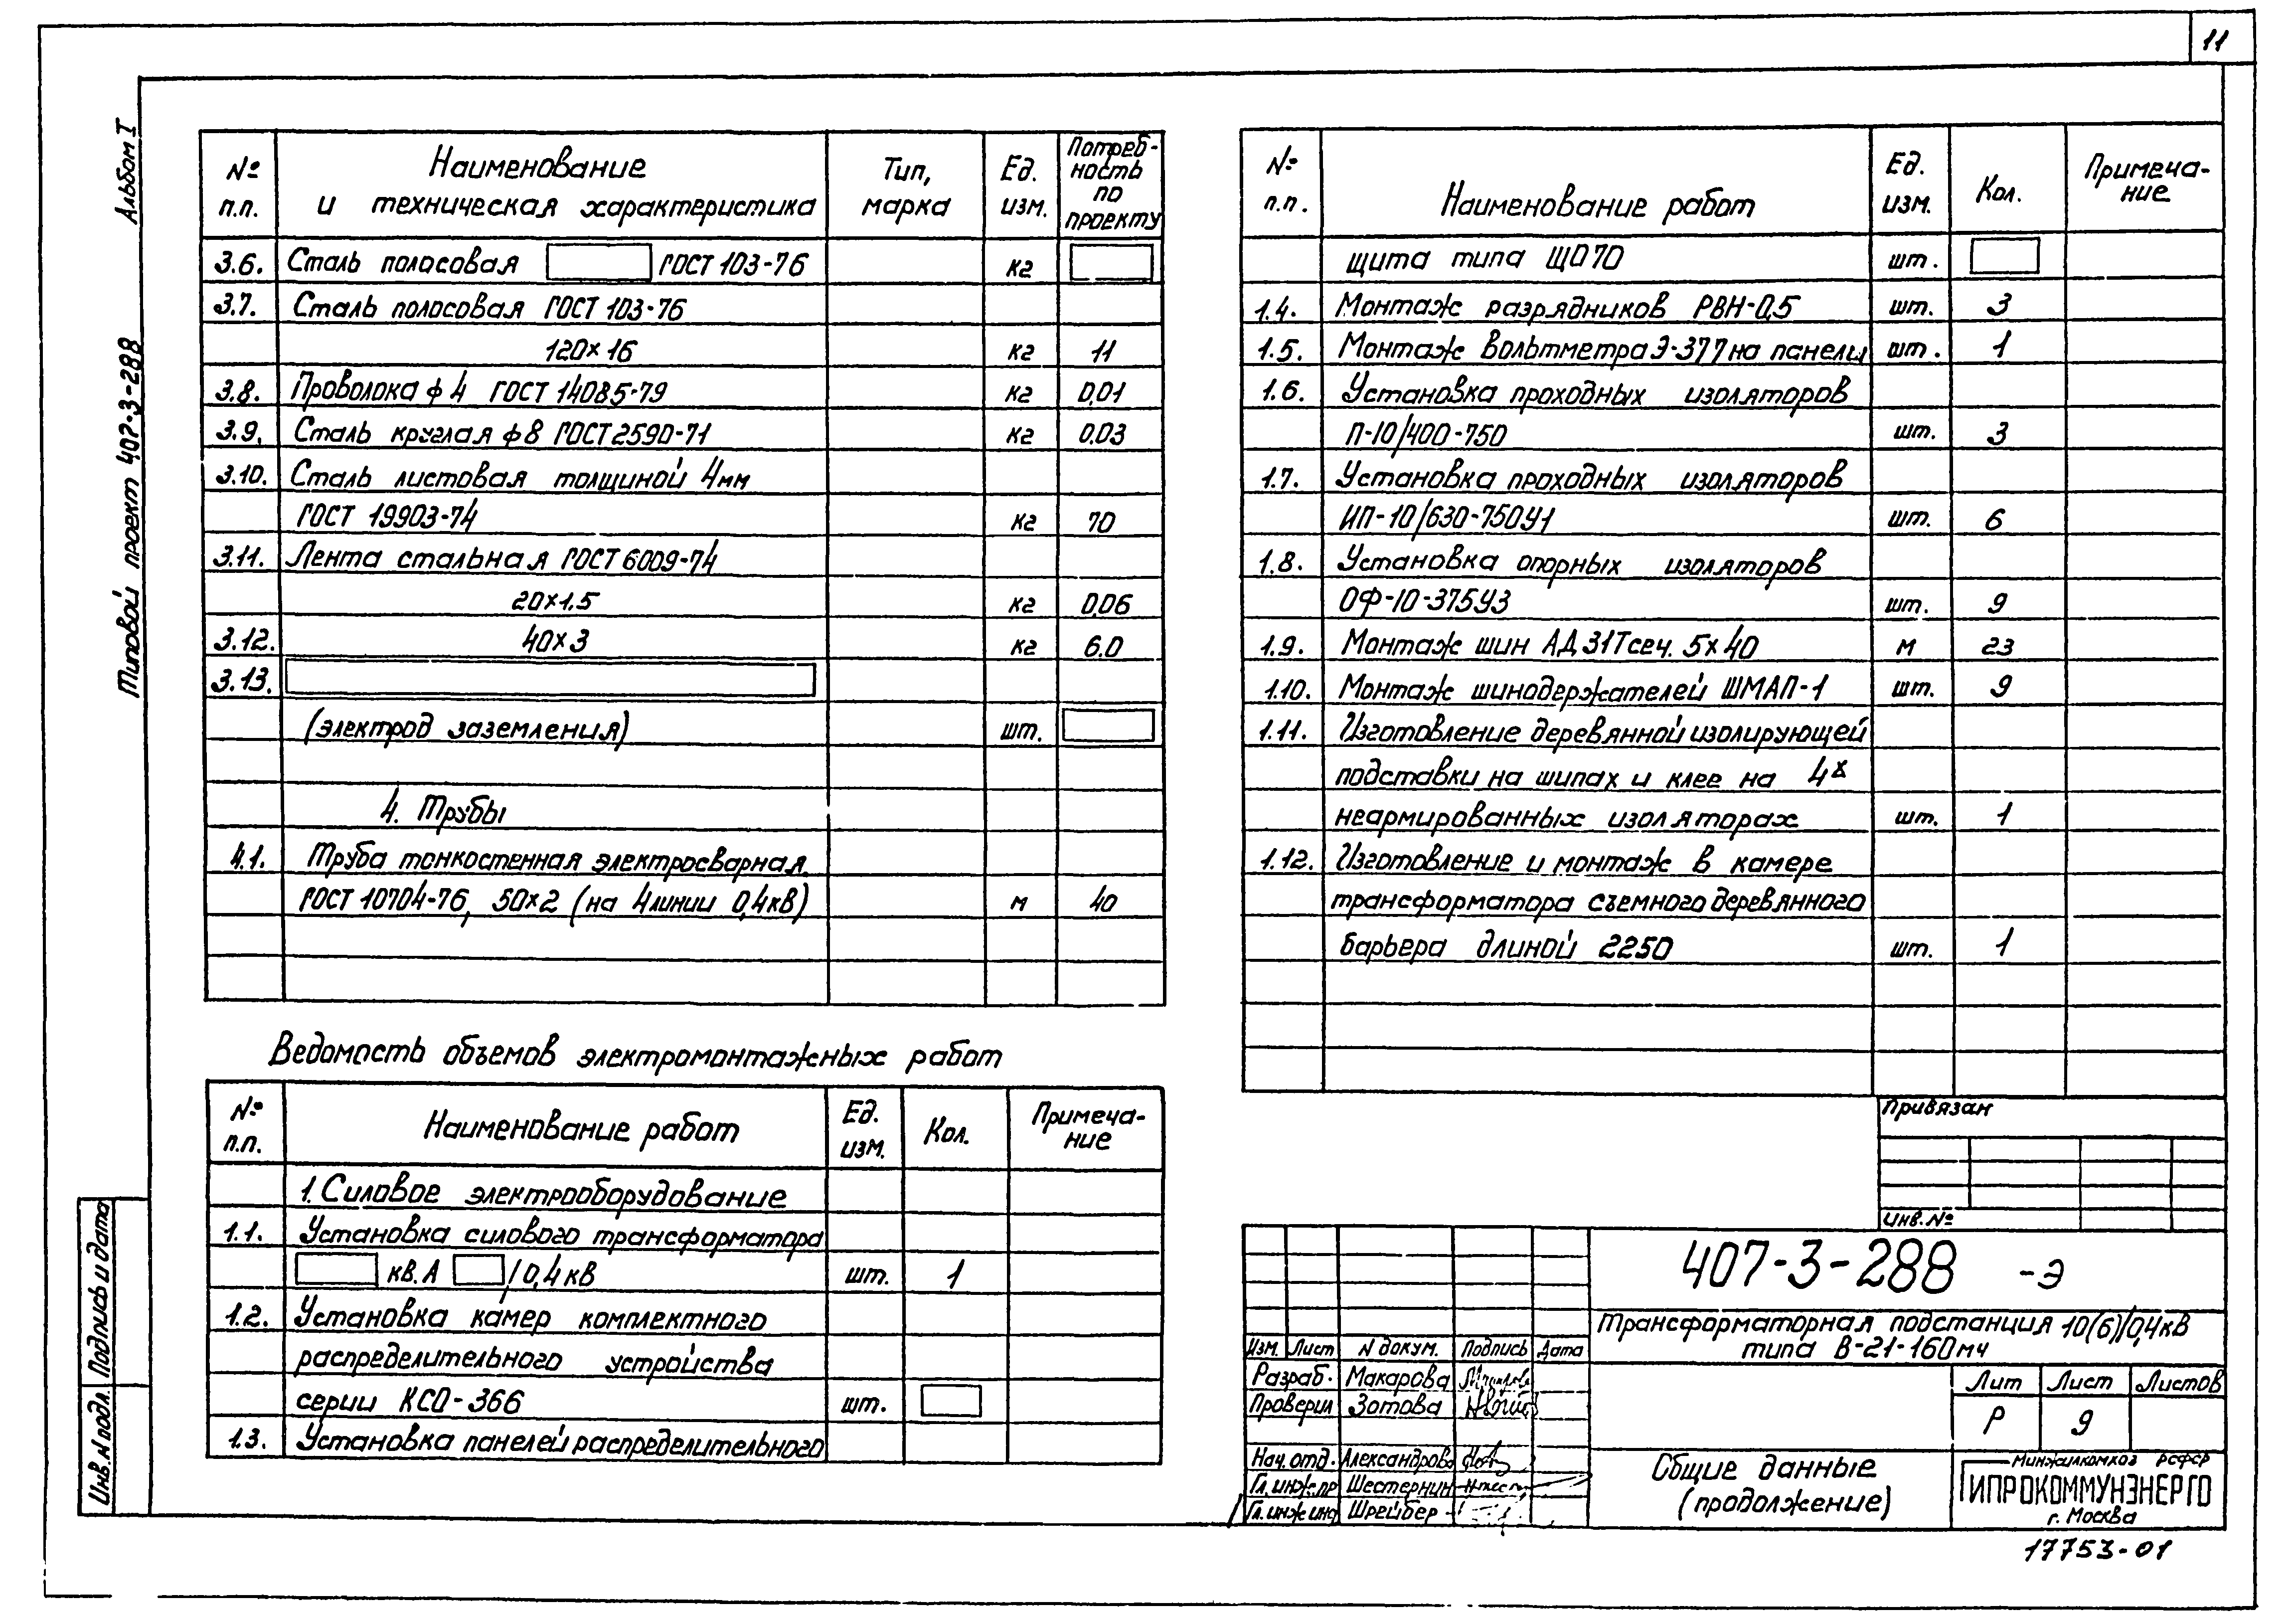 11
Альбом I
Типовой проект 407-3-288
№ п.п. Наименование и техническая характеристика Тип, марка Ед. изм. Потреб-ность по проекту
3.6. Сталь полосовая ГОСТ 103-76 кг
3.7. Сталь полосовая ГОСТ 103-76
120×16 кг 11
3.8. Проволока ф 4 ГОСТ 14085-79 кг 0.01
3.9. Сталь круглая ф 8 ГОСТ 2590-71 кг 0.03
3.10. Сталь листовая толщиной 4мм
ГОСТ 19903-74 кг 70
3.11. Лента стальная ГОСТ 6009-74
20×1.5 кг 0.06
3.12. 40×3 кг 6.0
3.13.
(электрод заземления) шт.
4. Трубы
4.1. Труба тонкостенная электросварная
ГОСТ 10704-76, 50×2 (на 4 линии 0,4кВ) м 40
Ведомость объемов электромонтажных работ
№ п.п. Наименование работ Ед. изм. Кол. Примеча-ние
1. Силовое электрооборудование
1.1. Установка силового трансформатора
кв.А /0,4кВ шт. 1
1.2. Установка камер комплектного
распределительного устройства
серии КСО-366 шт.
1.3. Установка панелей распределительного
№ п.п. Наименование работ Ед. изм. Кол. Примеча-ние
щита типа ЩО70 шт.
1.4. Монтаж разрядников РВН-0,5 шт. 3
1.5. Монтаж вольтметра Э-377 на панели шт. 1
1.6. Установка проходных изоляторов
П-10/400-750 шт. 3
1.7. Установка проходных изоляторов
ИП-10/630-750У1 шт. 6
1.8. Установка опорных изоляторов
ОФ-10-375У3 шт. 9
1.9. Монтаж шин АД31Т сеч. 5×40 м 23
1.10. Монтаж шинодержателей ШМАП-1 шт. 9
1.11. Изготовление деревянной изолирующей
подставки на шипах и клее на 4х
неармированных изоляторах шт. 1
1.12. Изготовление и монтаж в камере
трансформатора съемного деревянного
барьера длиной 2250 шт. 1
Привязан
Инв. №
407-3-288 -Э
Трансформаторная подстанция 10(6)/0,4кВ
типа В-21-160мч
Изм. Лист N докум. Подпись Дата
Разраб. Макарова
Проверил Зотова
Нач. отд. Александрова
Гл. инж. пр Шестернин
Гл. инж инд Шрейбер
Лит Лист Листов
Р 9
Общие данные
(продолжение)
Минжилкомхоз РСФСР
ГИПРОКОММУНЭНЕРГО
г. Москва
17753-01
Подпись и дата
Инв. N подл.